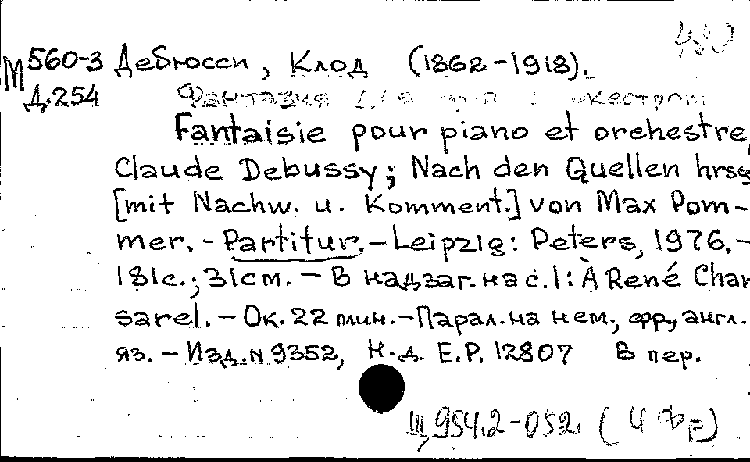 480
М 560-3 Дебюсси, Клод (1862-1918).
Д.254 Фантазия для
Fantaisie pour piano et orchestre,
Claude Debussy; Nach den Quellen hrsg
[mit Nachw. u. Komment.] von Max Pom-
mer. - Partitur. - Leipzig: Peters, 1976. -
181с.; 31см. - В надзаг. на с.1: À René Chan
sarel. - Ок. 22 мин. - Парал. на нем., фр., англ.
яз. - Изд. N 9352, н.д. E.P. 12807 В пер.
Щ954.2-052. (4Фр)